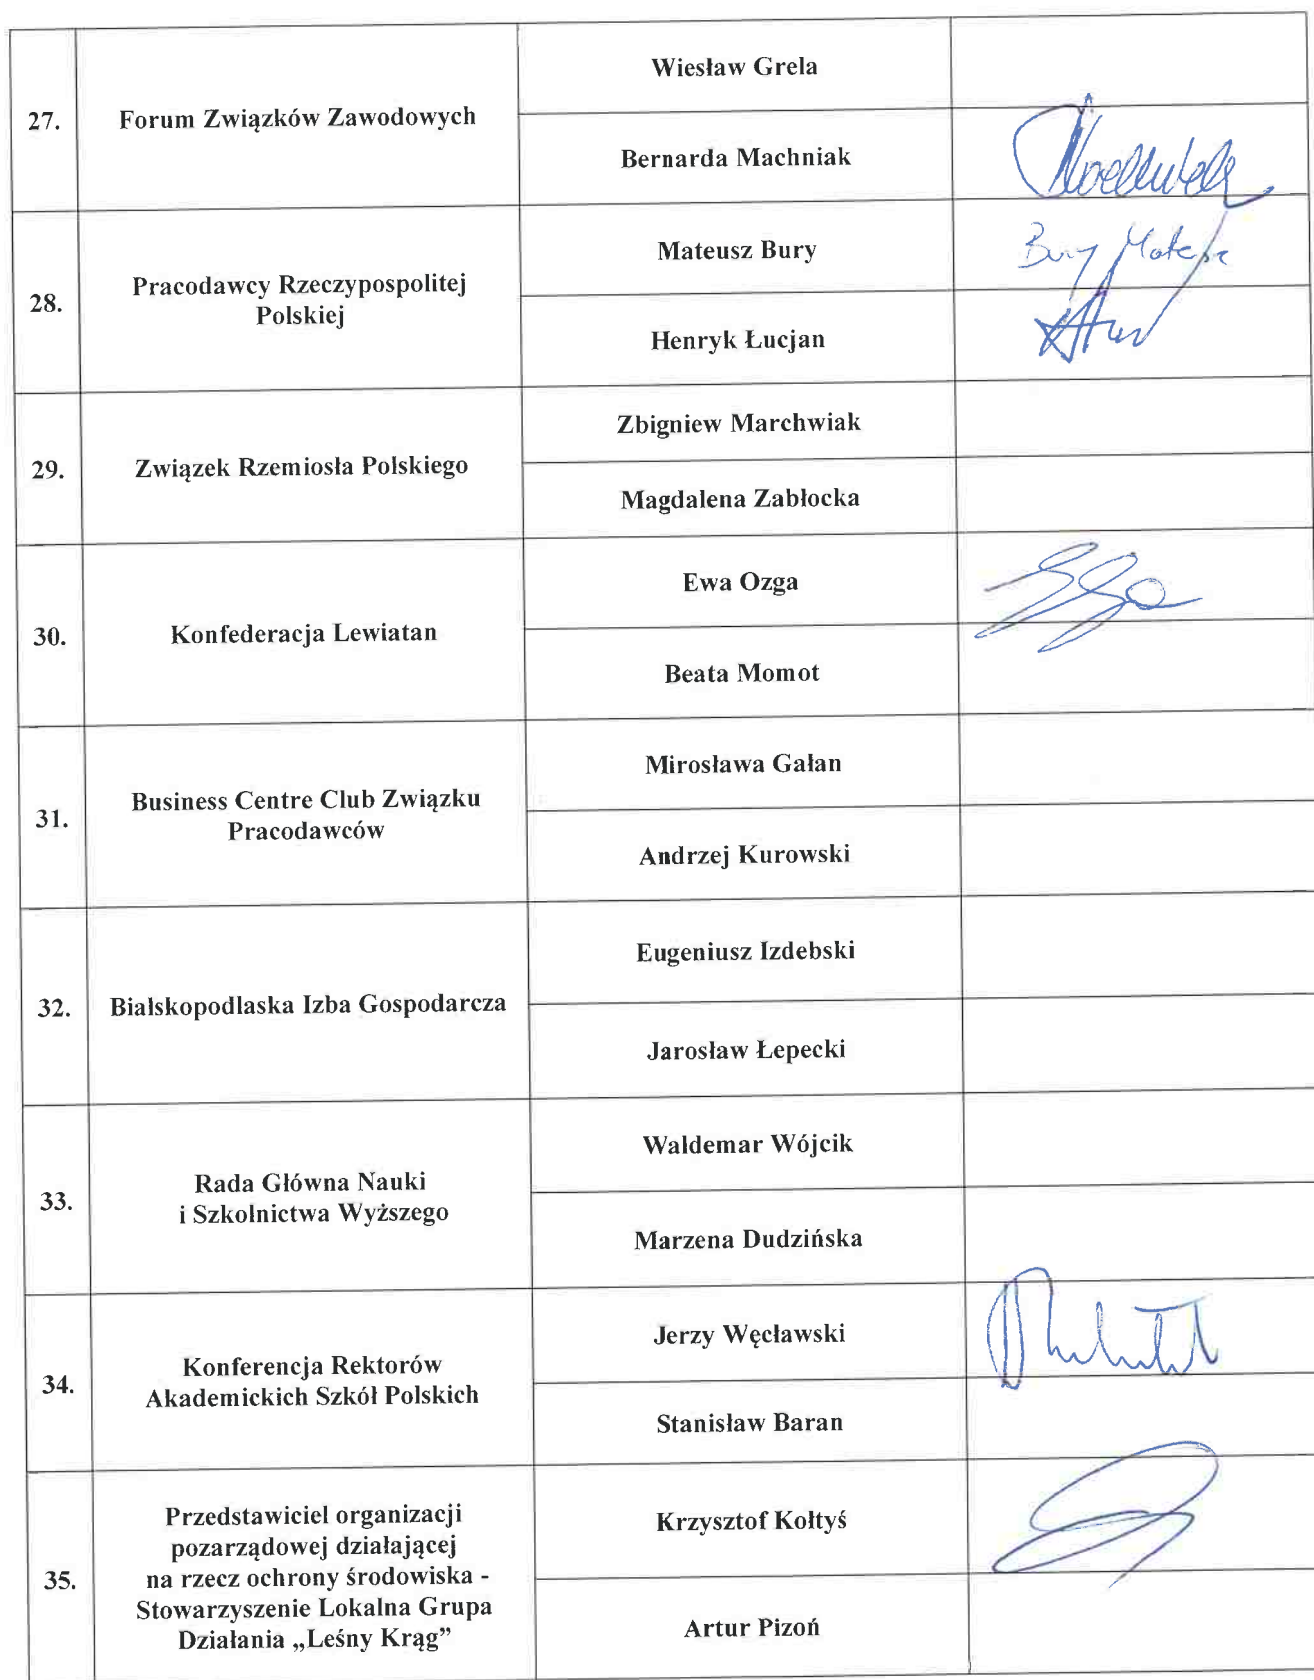 27.
Forum Związków Zawodowych
Wiesław Grela
Bernarda Machniak
28.
Pracodawcy Rzeczypospolitej
Polskiej
Mateusz Bury
Bury Mateusz
Henryk Łucjan
29.
Związek Rzemiosła Polskiego
Zbigniew Marchwiak
Magdalena Zabłocka
30.
Konfederacja Lewiatan
Ewa Ozga
Beata Momot
31.
Business Centre Club Związku
Pracodawców
Mirosława Gałan
Andrzej Kurowski
32.
Bialskopodlaska Izba Gospodarcza
Eugeniusz Izdebski
Jarosław Łepecki
33.
Rada Główna Nauki
i Szkolnictwa Wyższego
Waldemar Wójcik
Marzena Dudzińska
34.
Konferencja Rektorów
Akademickich Szkół Polskich
Jerzy Węcławski
Stanisław Baran
35.
Przedstawiciel organizacji
pozarządowej działającej
na rzecz ochrony środowiska -
Stowarzyszenie Lokalna Grupa
Działania „Leśny Krąg”
Krzysztof Kołtyś
Artur Pizoń